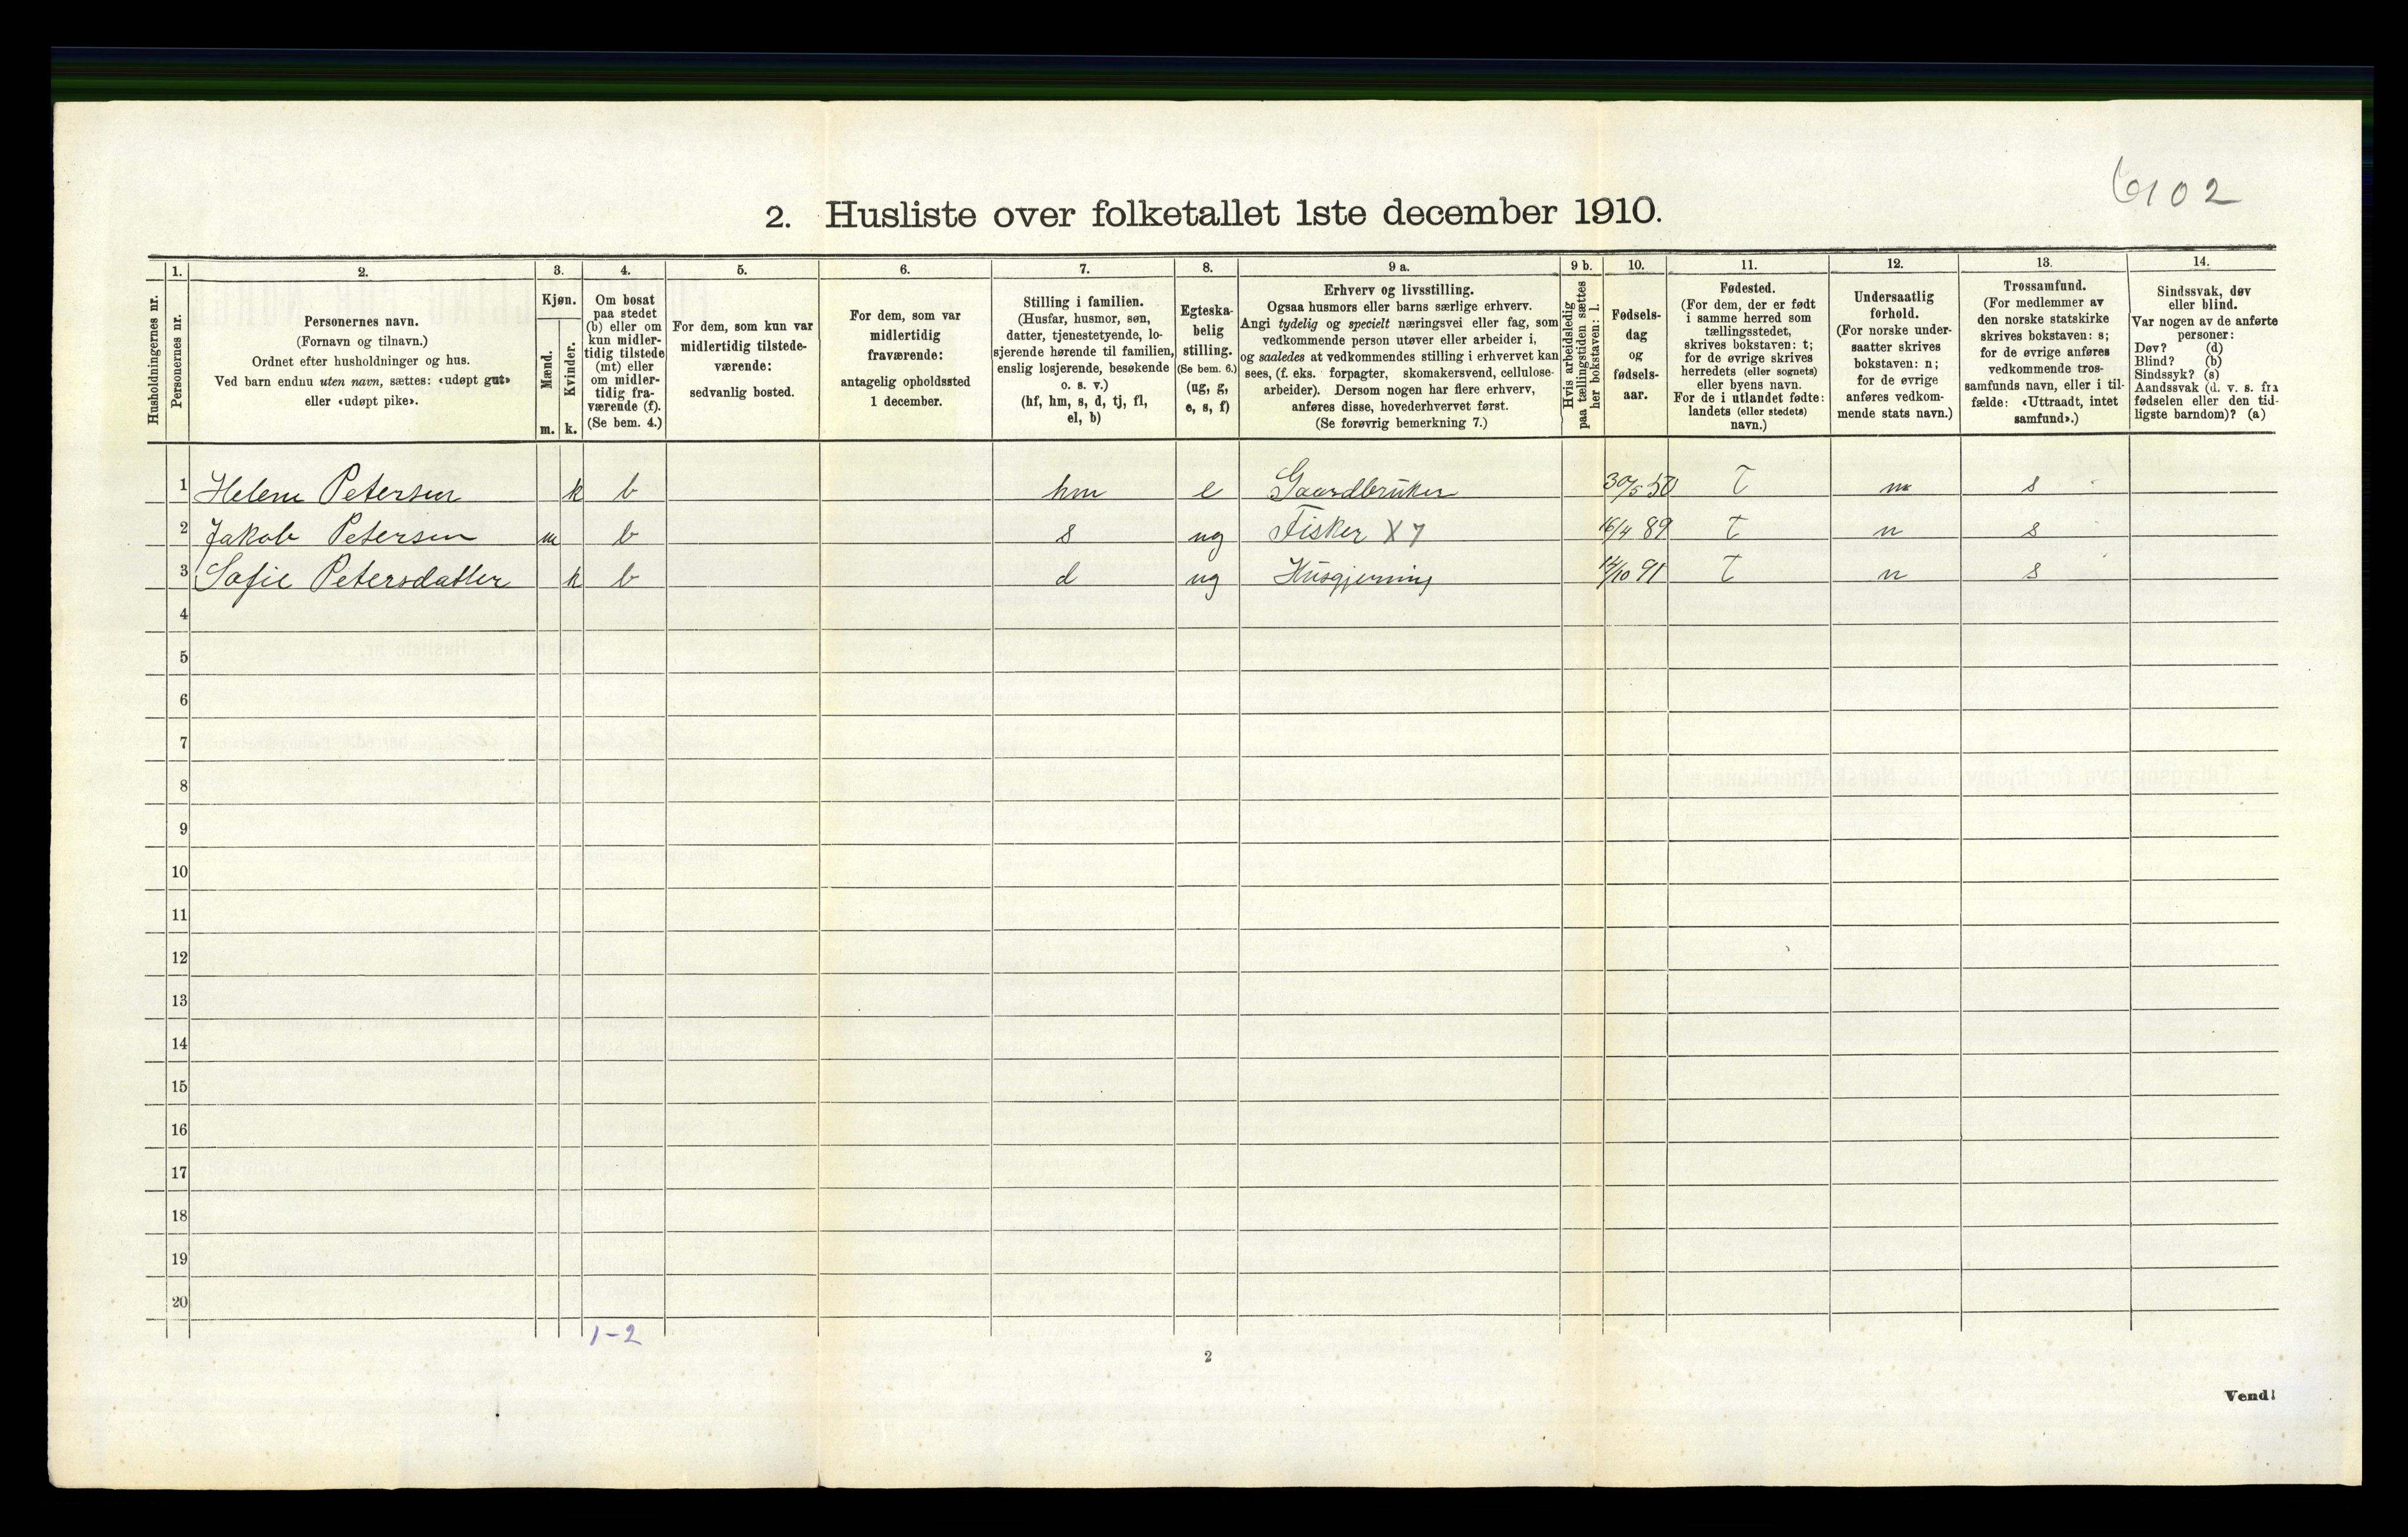 6102
2. Husliste over folketallet 1ste december 1910.
Husholdningernes nr.
1.
Personernes nr.
2.
Personernes navn.
(Fornavn og tilnavn.)
Ordnet efter husholdninger og hus.
Ved barn endnu uten navn, sættes: «udøpt gut»
eller «udøpt pike».
3.
Kjøn.
Mænd.
m.
Kvinder.
k.
4.
Om bosat
paa stedet
(b) eller om
kun midler-
tidig tilstede
(mt) eller
om midler-
tidig fra-
værende (f).
(Se bem. 4.)
5.
For dem, som kun var
midlertidig tilstede-
værende:
sedvanlig bosted.
6.
For dem, som var
midlertidig
fraværende:
antagelig opholdssted
1 december.
7.
Stilling i familien.
(Husfar, husmor, søn,
datter, tjenestetyende, lo-
sjerende hørende til familien,
enslig losjerende, besøkende
o. s. v.)
(hf, hm, s, d, tj, fl,
el, b)
8.
Egteska-
belig
stilling.
(Se bem. 6.)
(ug, g,
e, s, f)
9 a.
Erhverv og livsstilling.
Ogsaa husmors eller barns særlige erhverv.
Angi tydelig og specielt næringsvei eller fag, som
vedkommende person utøver eller arbeider i,
og saaledes at vedkommendes stilling i erhvervet kan
sees, (f. eks. forpagter, skomakersvend, cellulose-
arbeider). Dersom nogen har flere erhverv,
anføres disse, hovederhvervet først.
(Se forøvrig bemerkning 7.)
9 b.
Hvis arbeidsledig
paa tællingstiden sættes
her bokstaven: l.
10.
Fødsels-
dag
og
fødsels-
aar.
11.
Fødested.
(For dem, der er født
i samme herred som
tællingsstedet,
skrives bokstaven: t;
for de øvrige skrives
herredets (eller sognets)
eller byens navn.
For de i utlandet fødte:
landets (eller stedets)
navn.)
12.
Undersaatlig
forhold.
(For norske under-
saatter skrives
bokstaven: n;
for de øvrige
anføres vedkom-
mende stats navn.)
13.
Trossamfund.
(For medlemmer av
den norske statskirke
skrives bokstaven: s;
for de øvrige anføres
vedkommende tros-
samfunds navn, eller i til-
fælde: «Uttraadt, intet
samfund».)
14.
Sindssvak, døv
eller blind.
Var nogen av de anførte
personer:
Døv? (d)
Blind? (b)
Sindssyk? (s)
Aandssvak (d. v. s. fra
fødselen eller den tid-
ligste barndom)? (a)
1 Helene Petersen k b hm e Gaardbruker 30/5 50 T n s
2 Jakob Petersen m b s ug Fisker X 7 16/4 89 T n s
3 Sofie Petersdatter k b d ug Husgjerning 12/10 91 T n s
4
5
6
7
8
9
10
11
12
13
14
15
16
17
18
19
20
1-2
2
Vend!